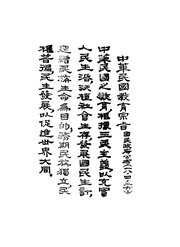 中華民國教育宗旨 國民政府公布一八、四、二六
中華民國之教育根據三民主義以充實
人民生活,扶植社會生存,發展國民生計,
延續民族生命為目的,務期民族獨立,民
權普遍,民生發展,以促進世界大同。